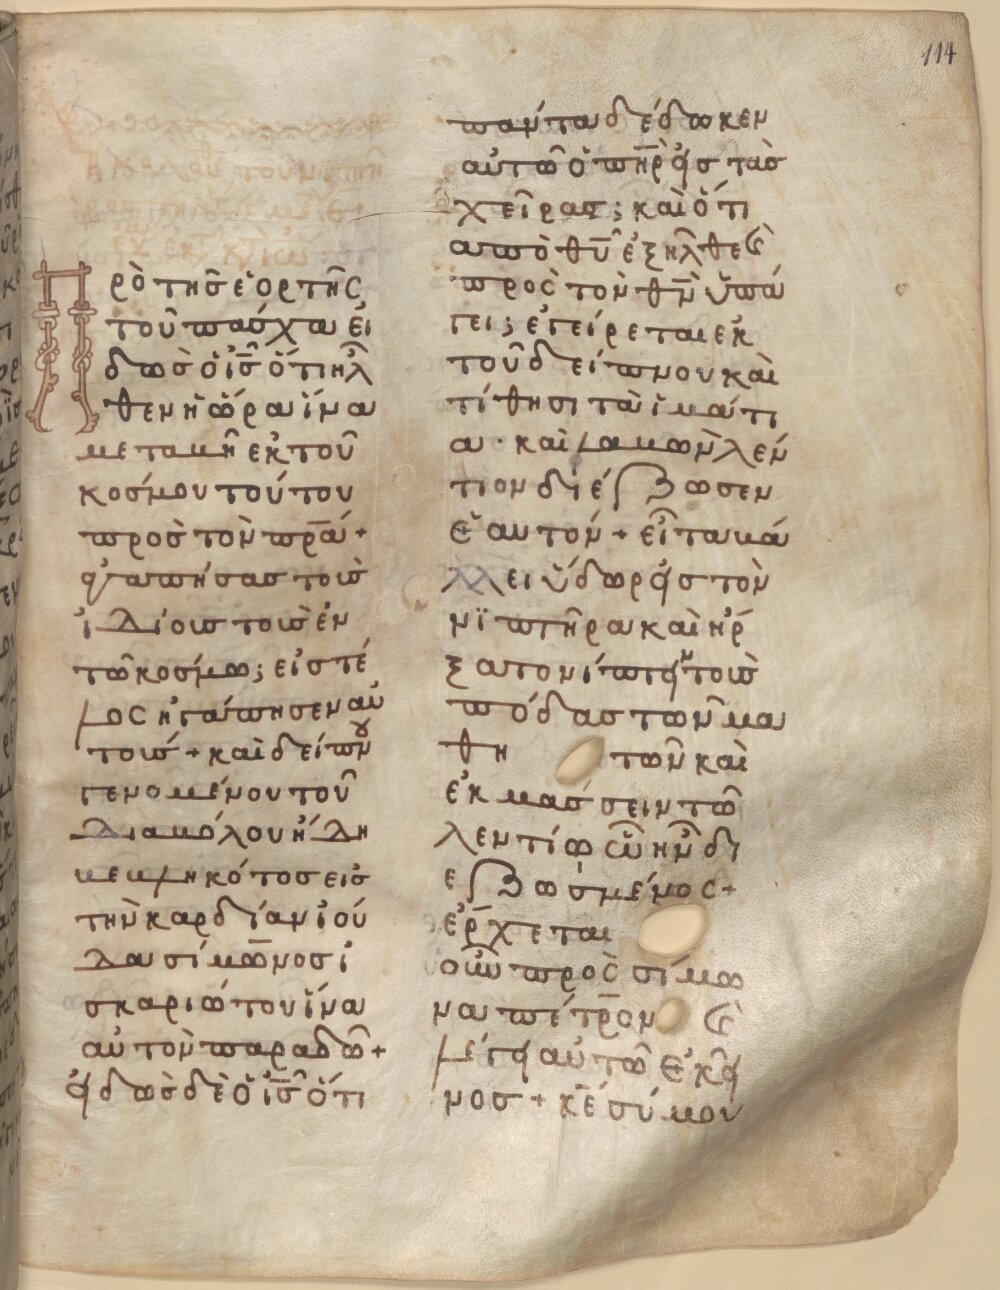 114
Πρὸ τῆσ ἑορτῆς
τοῦ πάσχα εἰ
δὼσ ὁ ι̅σ̅ ὅτι ἦλ
θεν ἡ ὥρα ἵνα
μεταβῆ ἐκ τοῦ
κόσμου τούτου
πρὸσ τὸν π̅ρ̅α̅ +
ἀγαπήσασ τοὺσ
ἰδίουσ τοὺσ ἐν
τῶ κόσμω; εἰσ τέ
λος ἠγάπησεν αὐ
τούσ + καὶ δείπνου
γενομένου τοῦ
διαβόλου ἤδη
βεβληκότοσ εἰσ
τὴν καρδίαν ἰού
δα σίμωνοσ ἰ
σκαριώτου ἵνα
αὐτὸν παραδῶ +
εἰδὼσ δὲ ὁ ι̅σ̅ ὅτι
πάντα δέδωκεν
αὐτῶ ὁ π̅η̅ρ̅ εἰσ τὰσ
χεῖρασ; καὶ ὅτι
ἀπὸ θ̅υ̅ ἐξῆλθε καὶ
πρὸς τὸν θ̅ν̅ ὑπά
γει; ἐγείρεται ἐκ
τοῦ δείπνου καὶ
τίθησι τὰ ἱμάτι
α · καὶ λαβὼν λέν
τιον διέζωσεν
ἑαυτόν + εἶτα βά
λλει ὕδωρ εἰσ τὸν
νιπτῆρα καὶ ἤρ
ξατο νίπτειν τοὺσ
πόδασ τῶν μα
θητῶν καὶ
ἐκμάσσειν τῶ
λεντίω ὧ ἦν δι
εζωσμένος +
ἔρχεται
οὖν πρὸς σίμω
να πέτρον καὶ
λέγει αὐτῶ ἐκεῖ
νοσ + κ̅ε̅ σύ μου